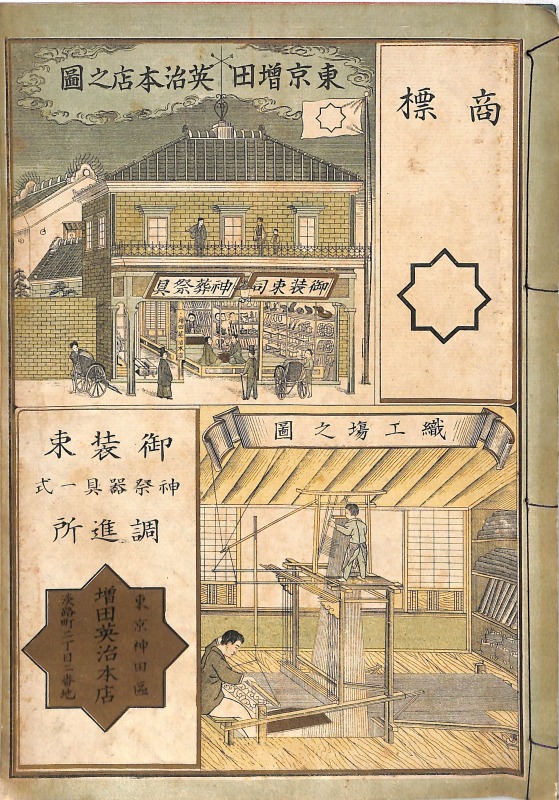 東京增田英治本店之圖
商標
御装束司
神葬祭具
御装束
神祭器具一式
調進所
東京神田區
増田英治本店
淡路町二丁目二番地
織工塲之圖